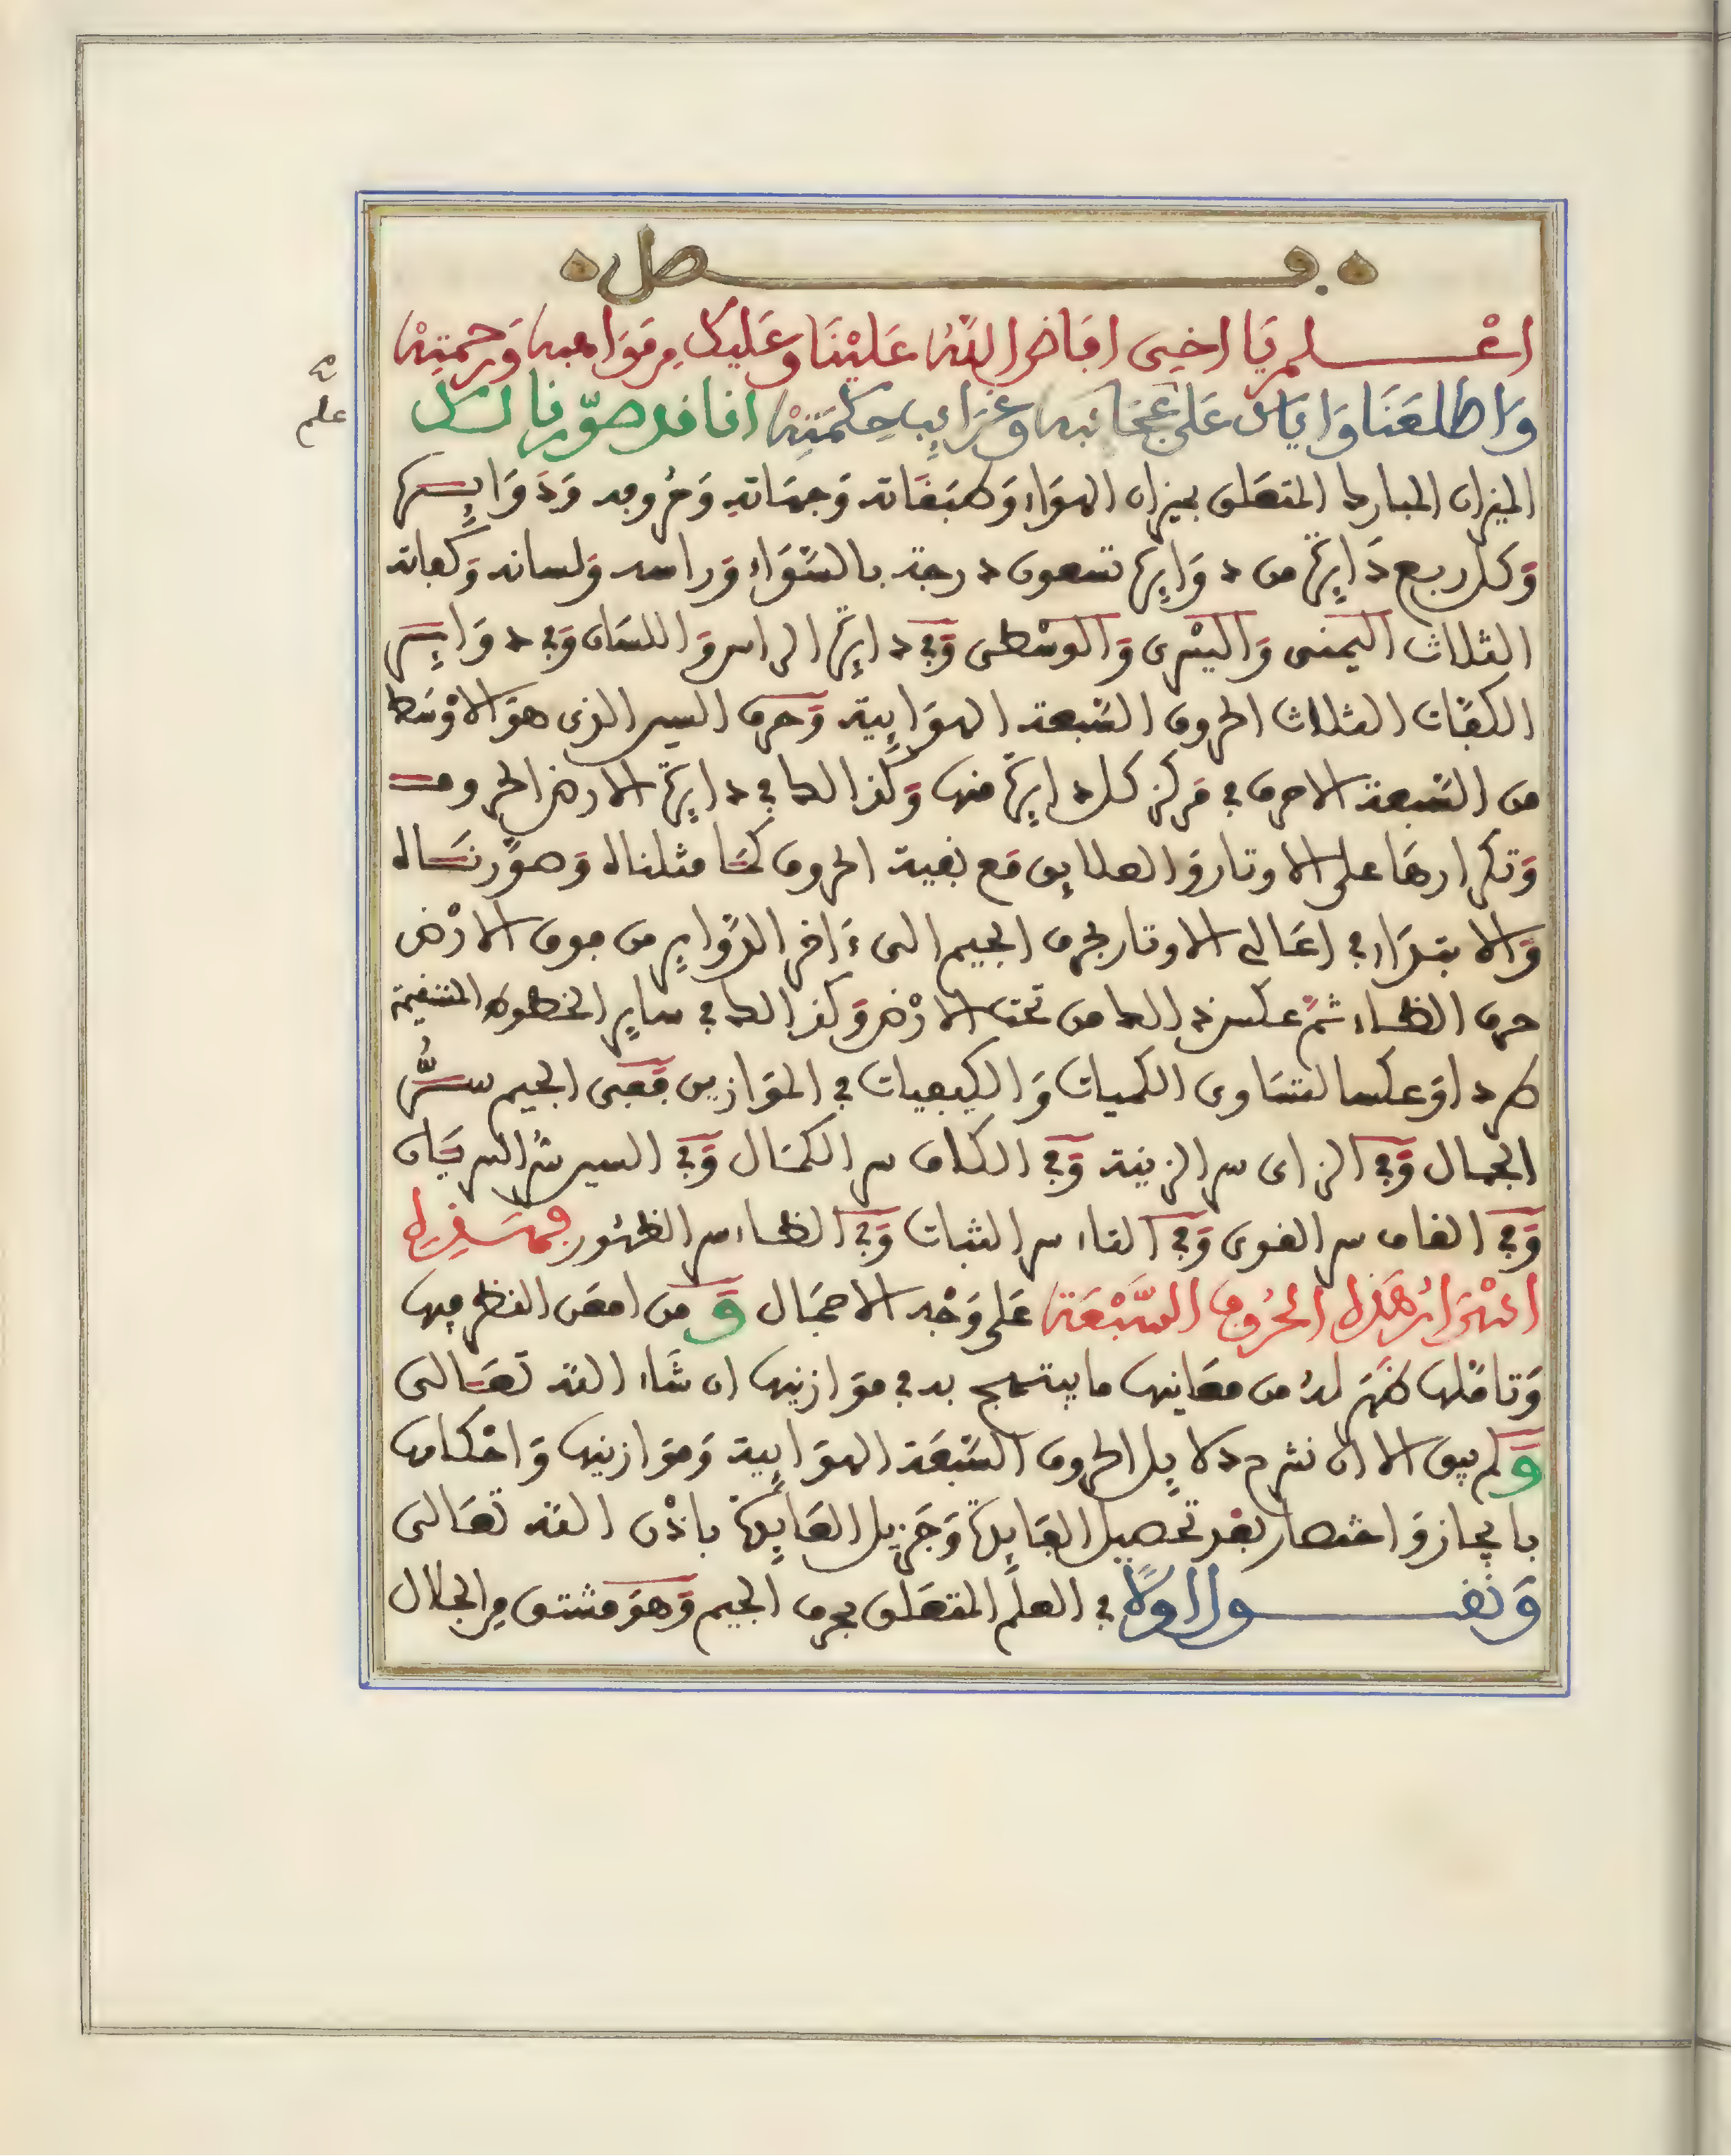 فصل
اعْلم يَا اخِي افَاضَ اللهُ عَلَيْنَا وعَلَيْكَ مِن مَوَاهبه وَرَحمتِهْ
وَاطلعَنَا وَاياكَ عَلى عَجَائبه وغَرَائِب حِكمَتِهْ اننا قد صوّرنا لك
الميزان المبارك المتعَلق بميزان الهوَاء وَطبَقَاته وَجهَاتهِ وَحُروفِه وَدَوَايِرِها
وَكل ربع دَايِرَة من دوَايِرِهَا تسعون درجة بالسَّوَاء وَراسه وَلسانه وَكفاته
الثلاث اليمنى وَاليسْرى وَالوسْطى وَفي دايِرَة الراس وَاللسَان وَفي دوَايِر
الكفّات الثلاث الحروف السّبعة الهوَايِية وَحرف السين الذي هوَ الاوْسَط
من السّبعة الاحرف في مَركز كل دايِرَة منها وَكذالك في دايِرَة الارض الحروف
وَتكرارهَا على الاوتار وَالعلايق مَع بقية الحروف كمَا مثلناه وَصوّرنَاه
وَالابتدَاء في اعَالي الاوتار بحرف الجيم الى ءَاخر الدّوايِر من فوق الارْض
حرف الظاء ثمّ عكس ذالك من تحت الارْض وَكذالك في سايِر الخطوط المستقيمة
طردا وَعكسا لتسَاوى الكميات وَالكيفيات في الموَازين فَفِى الجيم سرُّ
الجمال وَفي الزاى سر الزينة وَفي الكاف سر الكمَال وَفي السين سُر السرَيَان
وَفي القاف سر القوى وَفي التاء سر الثبات وَفي الظاء سر الظهُور فهَذِه
اسْرَارُ هَذِه الحُروف السَّبْعَة عَلى وَجْه الاجمَال وَمن امعَن النظر فيها
وَتامّلها ظهَر لهُ من معَانيها ما يبتهج به في موَازينها ان شَاء الله تعَالى
وَلم يبق الا ان نشرح دلايِل الحروف السّبعَة الهوَايِية وَموَازينها وَاحْكامها
بايجاز وَاختصار بعْد تحصيل الفَايِدَة وَجَزيل العَايِدَة باذْن الله تعَالى
وَنقول اولاً في العلم المتعَلق بحرف الجيم وَهوَ مشتق من الجلال
علم